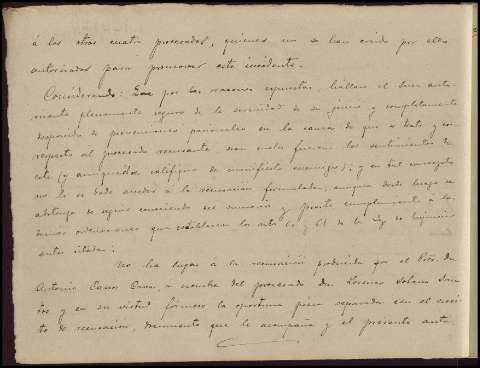 á los otros cuatro procesados, quienes no se han creido por ello
autorizados para promover este incidente.
Considerando: Que por las razones expuestas, hállase el Juez
mente plenamente seguro de la serenidad de su juicio y completamente
despojado de prevenciones pasionales en la causa de que se trata y con
respecto al procesado recusante sean cuales fueren los sentimientos de
este (y aunque los califique de manifiesta enemiga); y en tal concepto
no le es dado acceder á la recusacion formulada; aunque desde luego se
abstenga de seguir conociendo del sumario y preste cumplimiento á las
demas ordenaciones que establecen los arts 60 y 61 de la Ley de Enjuiciar
antes citada;
No ha lugar á la recusacion producida por el Proc. Dn
Antonio Casas Casas, á nombre del procesado don Lorenzo Solano
y en su virtud fórmese la oportuna pieza separada con el escri
to de recusación, documento que le acompaña y el presente auto.